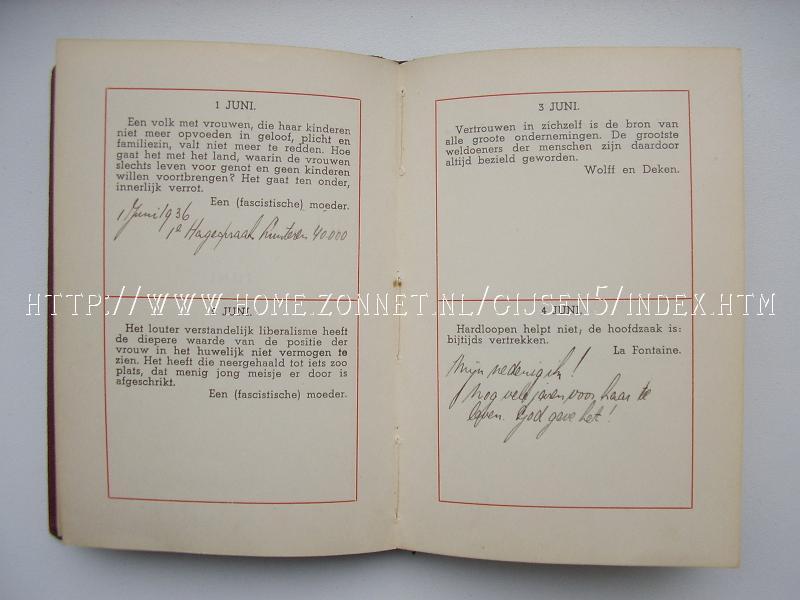 1 JUNI.
Een volk met vrouwen, die haar kinderen
niet meer opvoeden in geloof, plicht en
familiezin, valt niet meer te redden. Hoe
gaat het met het land, waarin de vrouwen
slechts leven voor genot en geen kinderen
willen voortbrengen? Het gaat ten onder,
innerlijk verrot.
Een (fascistische) moeder.
1 Juni 1936
1e Hagespraak Lunteren 40.000
2 JUNI.
Het louter verstandelijk liberalisme heeft
de diepere waarde van de positie der
vrouw in het huwelijk niet vermogen te
zien. Het heeft die neergehaald tot iets zoo
plats, dat menig jong meisje er door is
afgeschrikt.
Een (fascistische) moeder.
3 JUNI.
Vertrouwen in zichzelf is de bron van
alle groote ondernemingen. De grootste
weldoeners der menschen zijn daardoor
altijd bezield geworden.
Wolff en Deken.
4 JUNI.
Hardloopen helpt niet; de hoofdzaak is:
bijtijds vertrekken.
La Fontaine.
Mijn !
nog vele jaren voor haar te
leven. God geve het!
HTTP://WWW.HOME.ZONNET.NL/GIJSEN5/INDEX.HTM